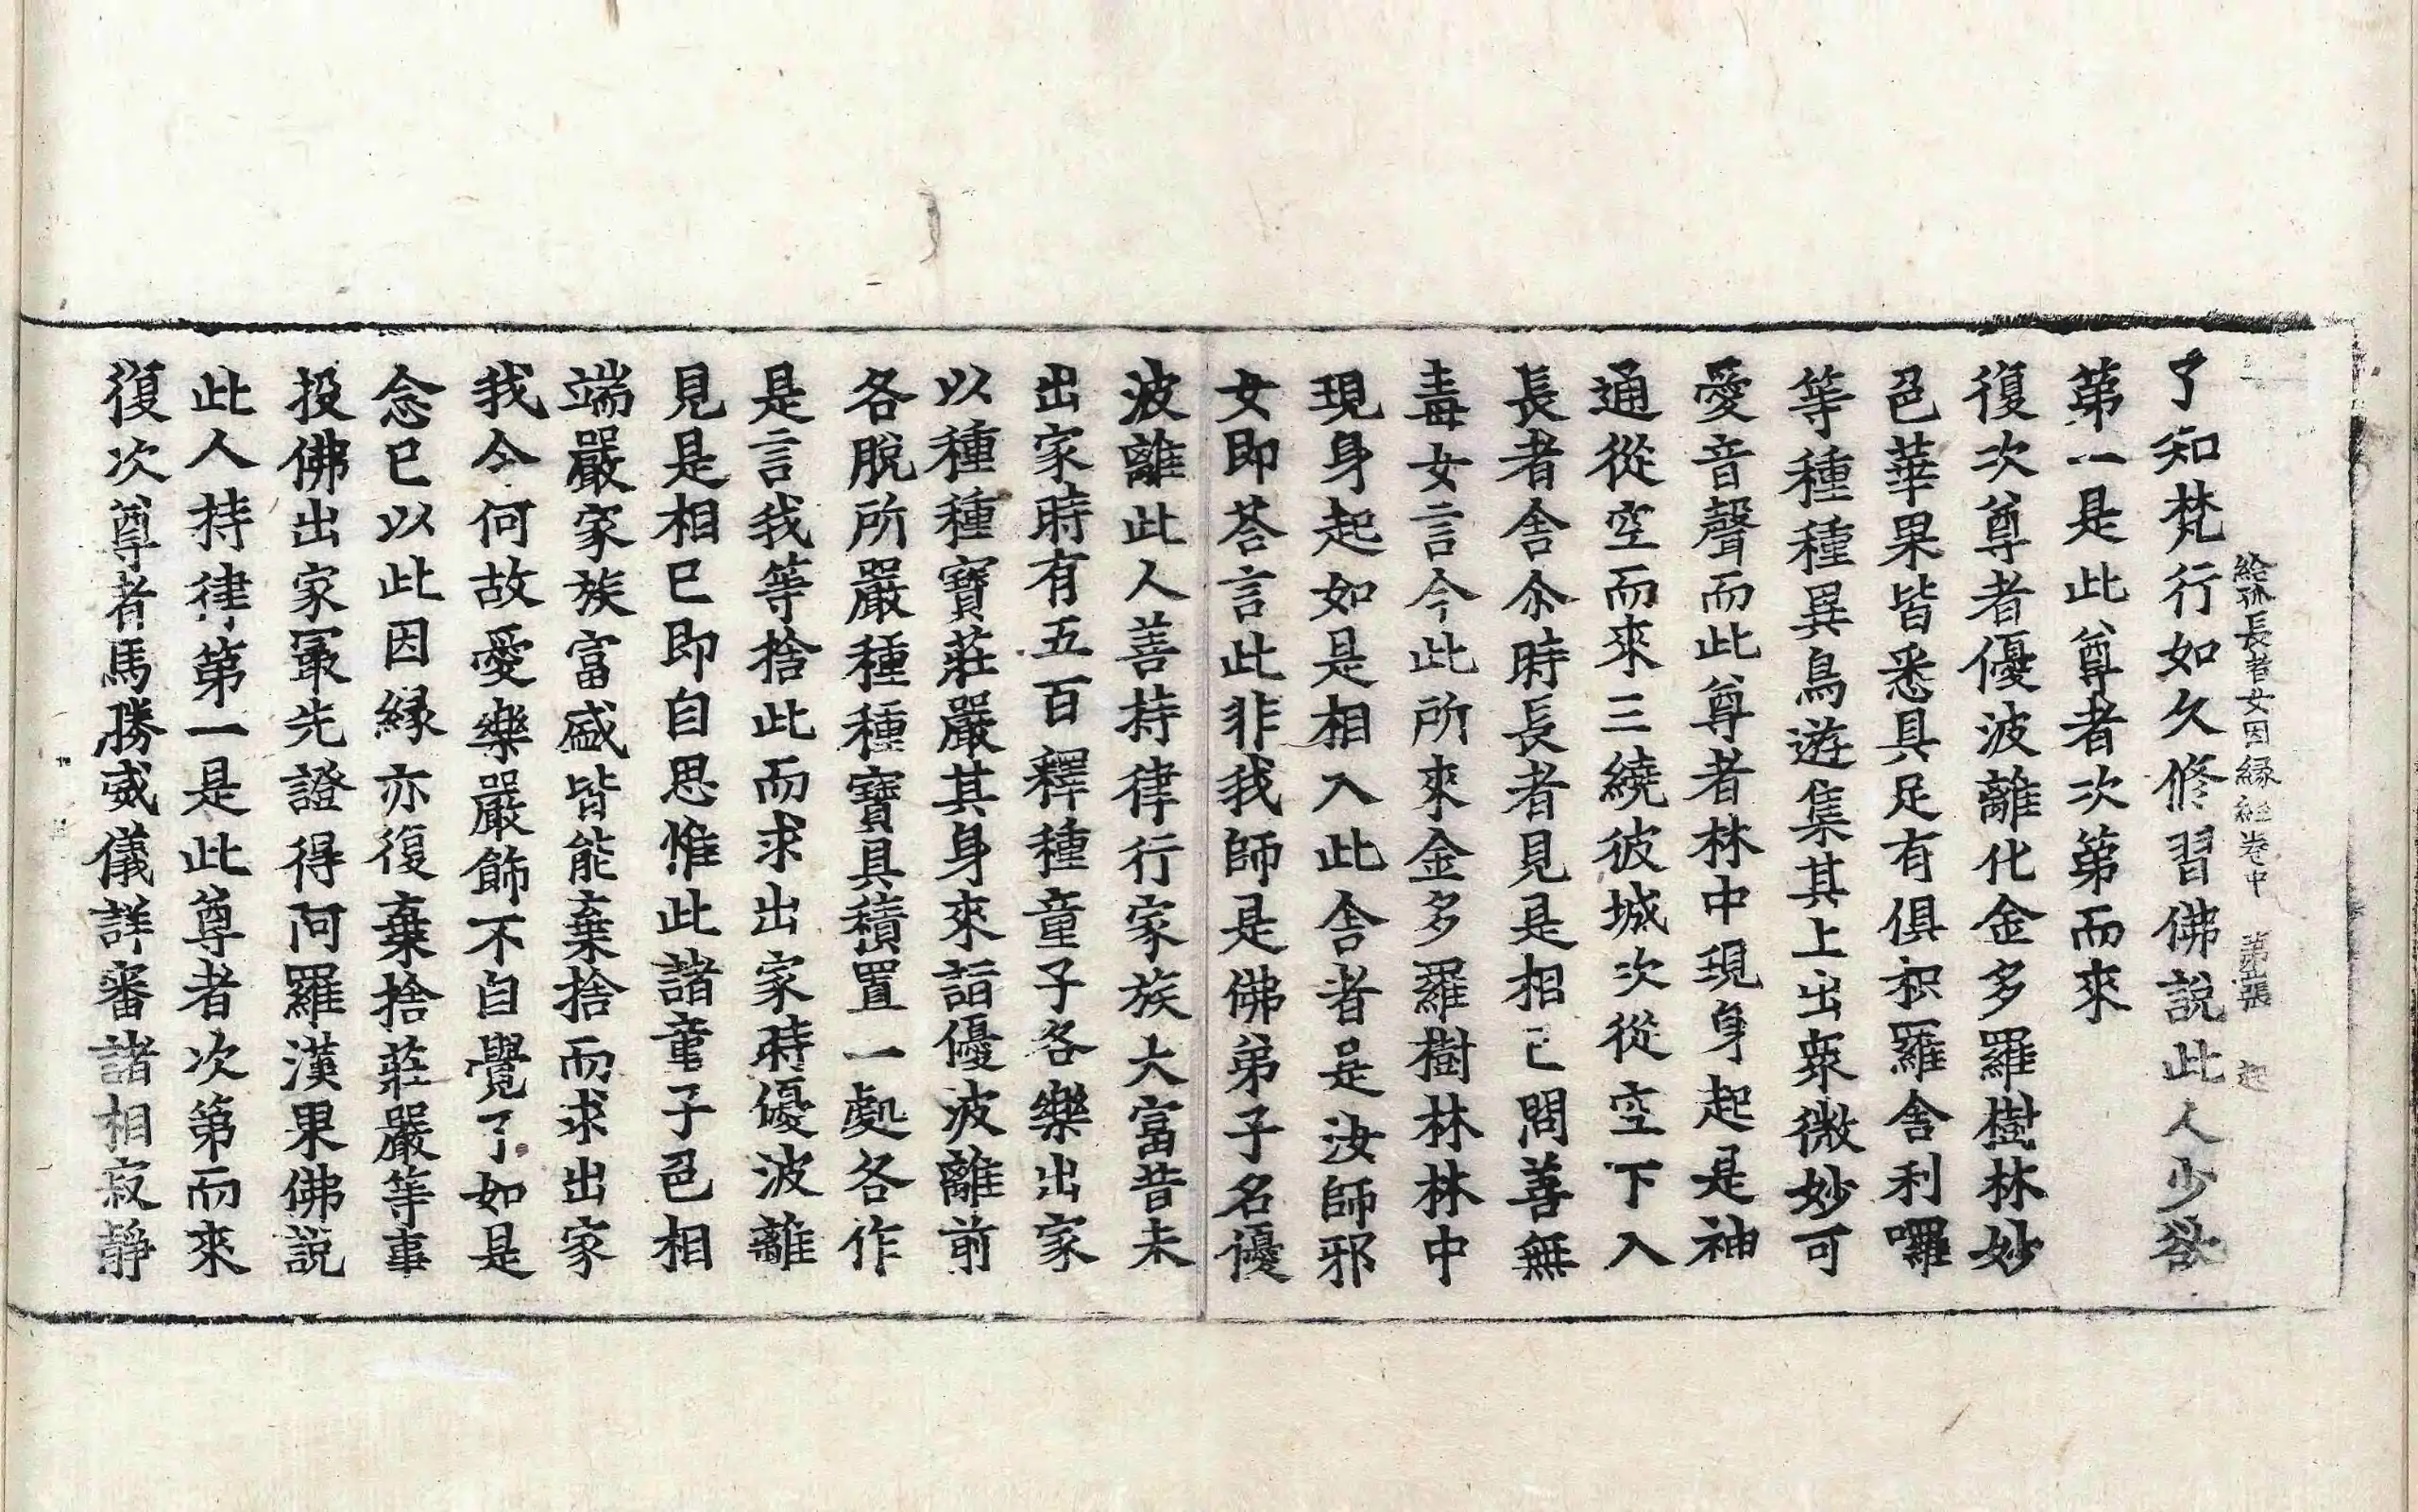 給孤長者女因緣經卷中 第 張 起
了知梵行如久修習佛說此人少欲
第一是此尊者次第而來
復次尊者優波離化金多羅樹林妙
色華果皆悉具足有俱枳羅舍利囉
等種種異鳥遊集其上出衆微妙可
愛音聲而此尊者林中現身起是神
通從空而來三繞彼城次從空下入
長者舍尒時長者見是相已問善無
毒女言今此所來金多羅樹林林中
現身起如是相入此舍者是汝師邪
女即荅言此非我師是佛弟子名優
波離此人善持律行家族大富昔未
出家時有五百釋種童子各樂出家
以種種寶莊嚴其身來詣優波離前
各脫所嚴種種寶具積置一處各作
是言我等捨此而求出家時優波離
見是相已即自思惟此諸童子色相
端嚴家族富盛皆能棄捨而求出家
我今何故愛樂嚴飾不自覺了如是
念已以此因緣亦復棄捨莊嚴等事
投佛出家冣先證得阿羅漢果佛說
此人持律第一是此尊者次第而來
復次尊者馬勝威儀詳審諸相寂靜